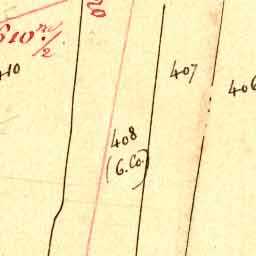 610 m/2
20
410
407
406
408
(G. Co.)